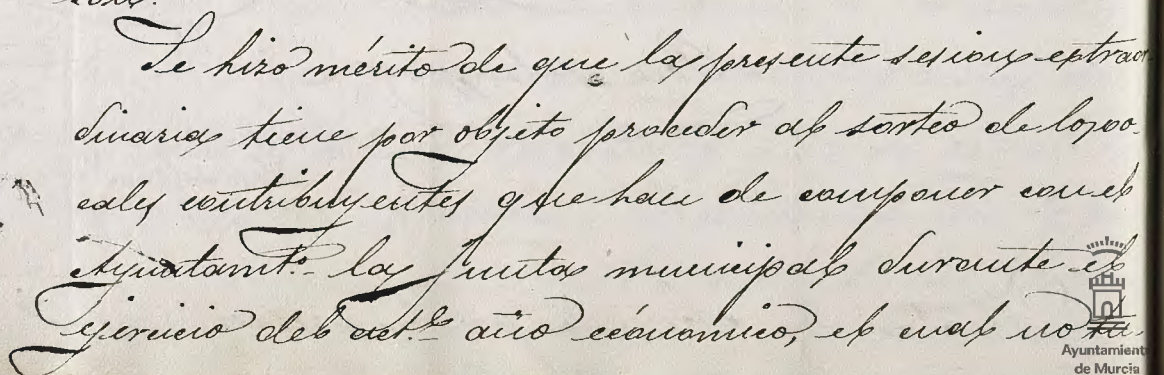 Se hizo mérito de que la presente sesion extraor-
dinaria tiene por objeto proceder al sorteo de los vo-
cales contribuyentes que han de componer con el
Ayuntamto. la Junta municipal durante el
ejercicio del actl. año económico, el cual no tu-
Ayuntamiento
de Murcia